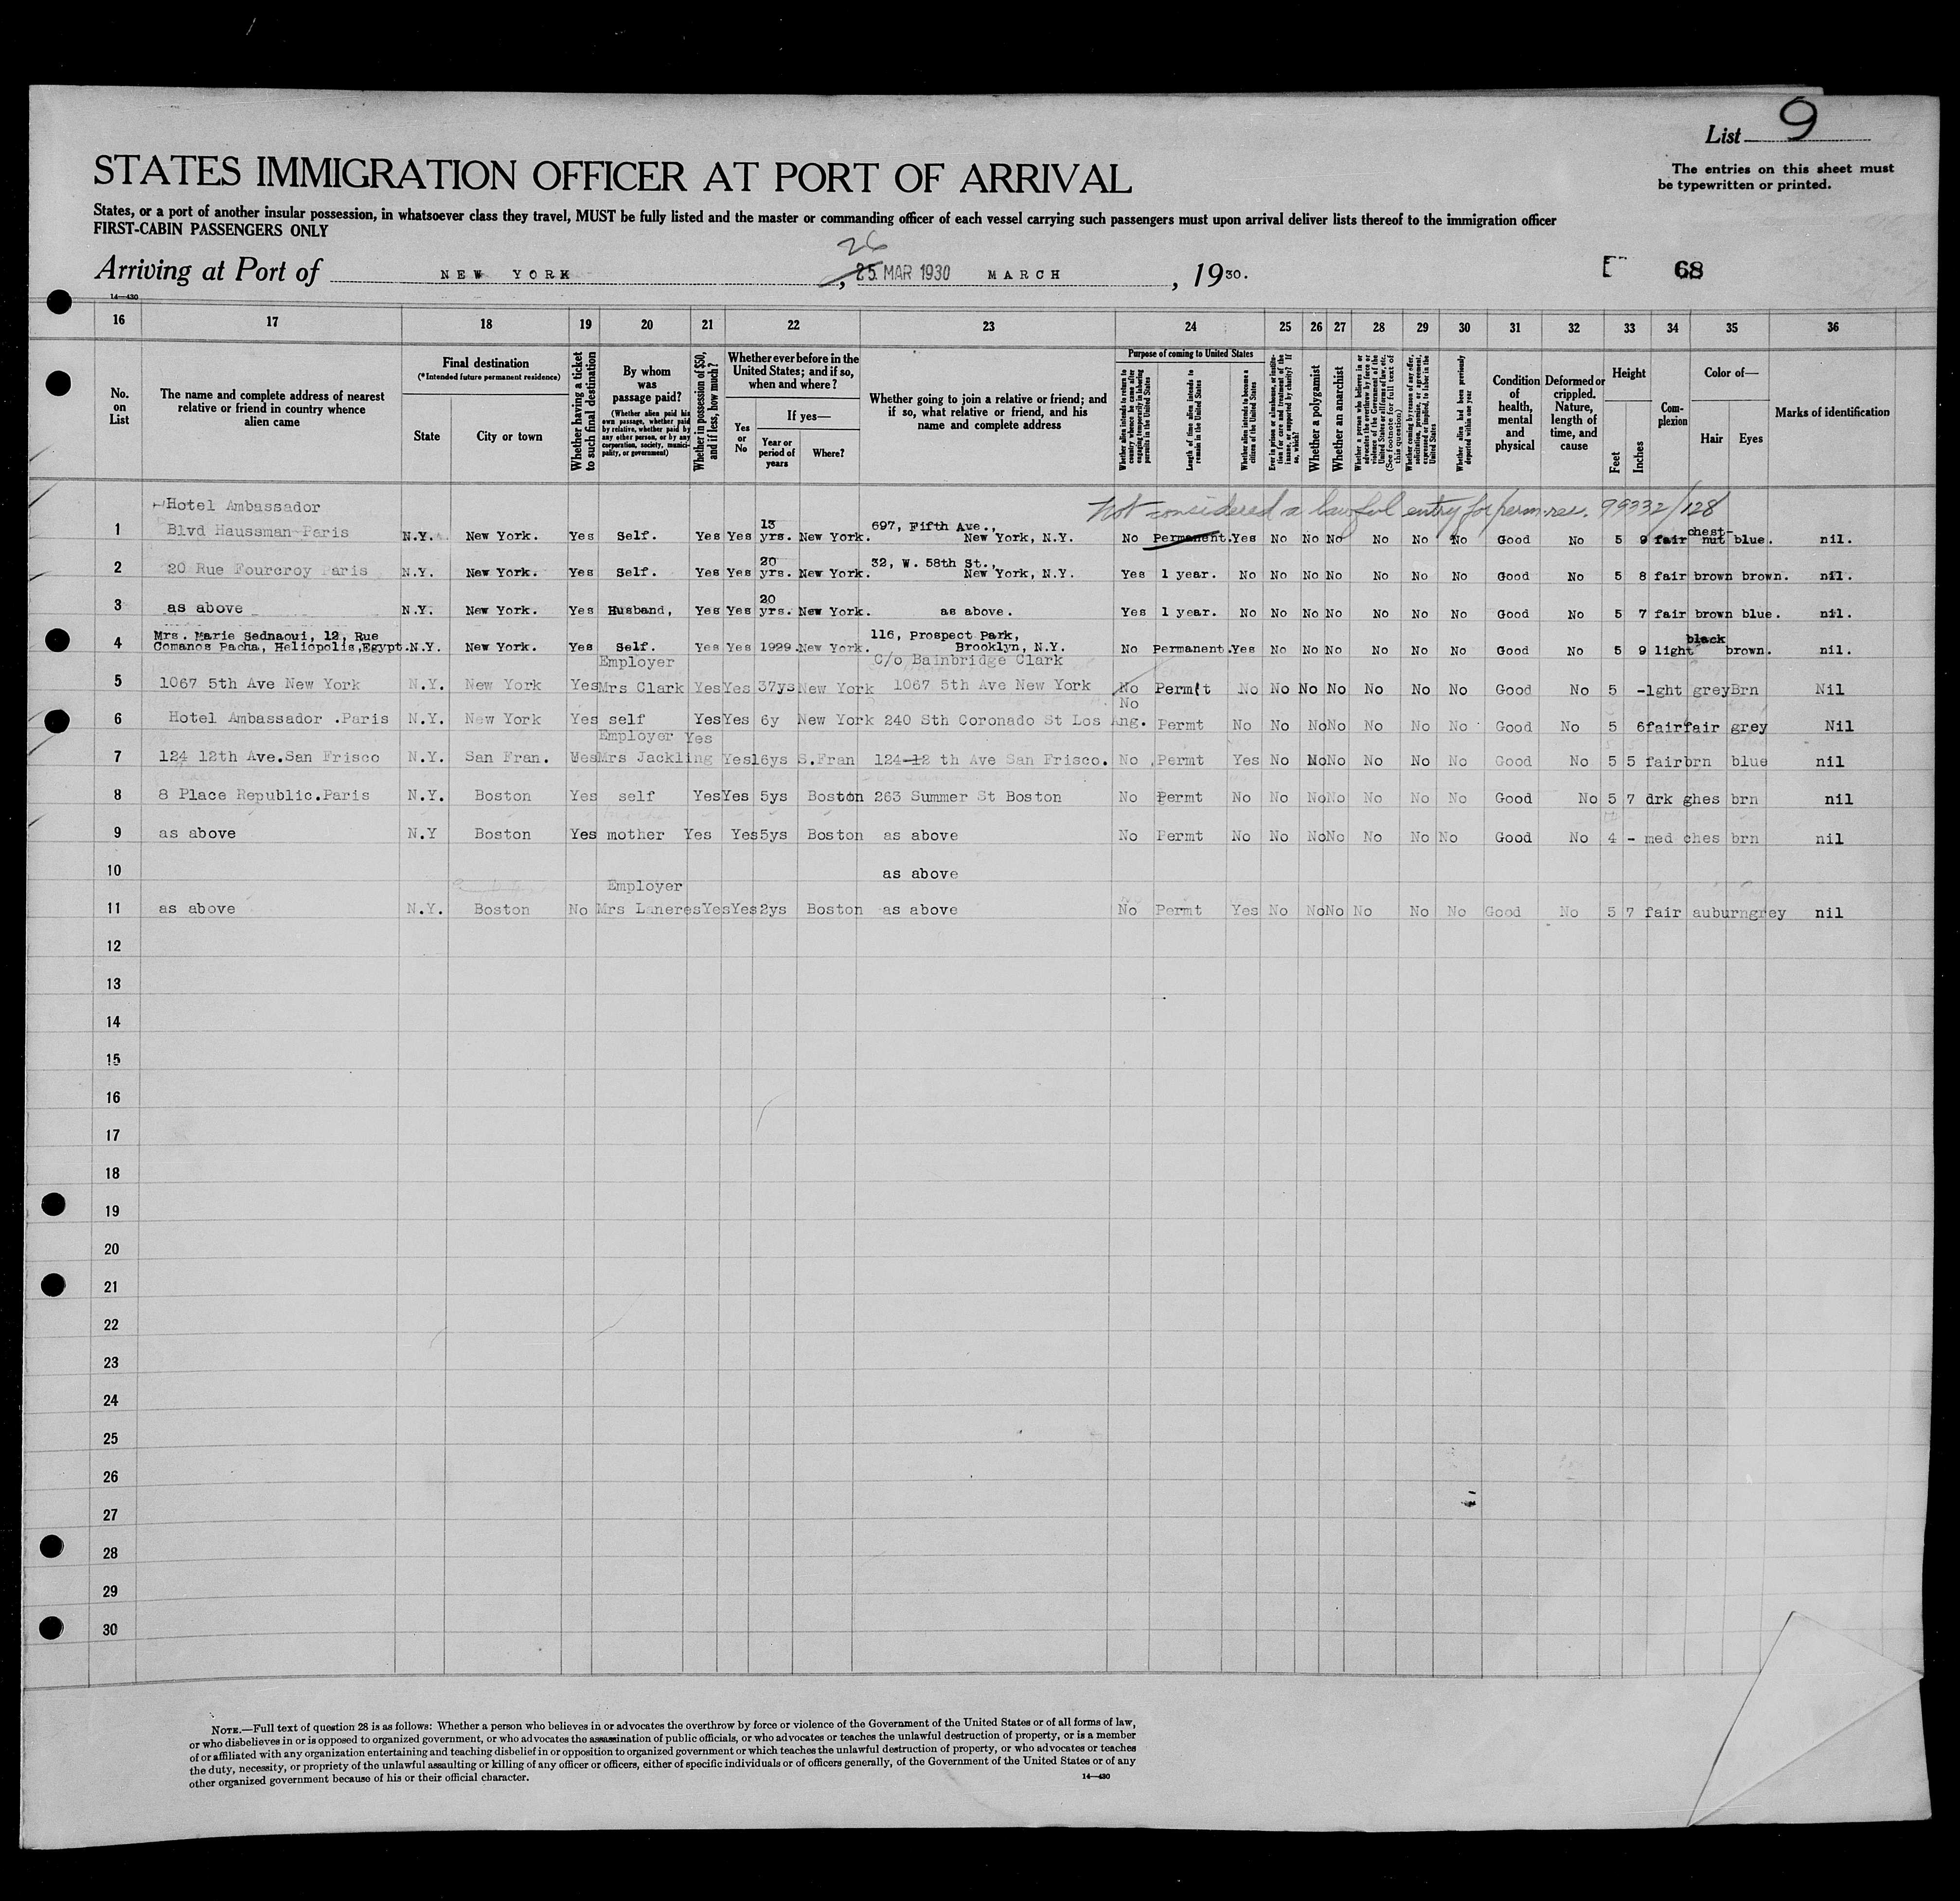 List 9
The entries on this sheet must
be typewritten or printed.
STATES IMMIGRATION OFFICER AT PORT OF ARRIVAL
States, or a port of another insular possession, in whatsoever class they travel, MUST be fully listed and the master or commanding officer of each vessel carrying such passengers must upon arrival deliver lists thereof to the immigration officer
FIRST-CABIN PASSENGERS ONLY
26
Arriving at Port of NEW YORK, 25 MAR 1930 MARCH, 1930.
68
14—430
16 17 18 19 20 21 22 23 24 25 26 27 28 29 30 31 32 33 34 35 36
No. on List
The name and complete address of nearest relative or friend in country whence alien came
Final destination
(*Intended future permanent residence)
State
City or town
Whether having a ticket to such final destination
By whom was passage paid?
(Whether alien paid his own passage, whether paid by relative, whether paid by any other person, or by any corporation, society, municipality, or government)
Whether in possession of $50, and if less, how much?
Whether ever before in the United States; and if so, when and where?
Yes or No
If yes—
Year or period of years
Where?
Whether going to join a relative or friend; and if so, what relative or friend, and his name and complete address
Purpose of coming to United States
Whether alien intends to return to country whence he came after engaging temporarily in laboring pursuits in the United States
Length of time alien intends to remain in the United States
Whether alien intends to become a citizen of the United States
Ever in prison or almshouse, or institution for care and treatment of the insane, or supported by charity? If so, which?
Whether a polygamist
Whether an anarchist
Whether a person who believes in or advocates the overthrow by force or violence of the Government of the United States or all forms of law, etc. (See footnote for full text of this question)
Whether coming by reason of any offer, solicitation, promise, or agreement, expressed or implied, to labor in the United States
Whether alien had been previously deported within one year
Condition of health, mental and physical
Deformed or crippled. Nature, length of time, and cause
Height
Feet
Inches
Complexion
Color of—
Hair
Eyes
Marks of identification
Not considered a lawful entry for perm. res. 99332/128
1 Hotel Ambassador Blvd Haussman Paris N.Y. New York. Yes Self. Yes Yes 13 yrs. New York. 697, Fifth Ave., New York, N.Y. No Permanent. Yes No No No No No No Good No 5 9 fair chest-nut blue. nil.
2 20 Rue Fourcroy Paris N.Y. New York. Yes Self. Yes Yes 20 yrs. New York. 32, W. 58th St., New York, N.Y. Yes 1 year. No No No No No No No Good No 5 8 fair brown brown. nil.
3 as above N.Y. New York. Yes Husband, Yes Yes 20 yrs. New York. as above. Yes 1 year. No No No No No No No Good No 5 7 fair brown blue. nil.
4 Mrs. Marie Sednaoui, 12, Rue Comanos Pacha, Heliopolis, Egypt. N.Y. New York. Yes Self. Yes Yes 1929. New York. 116, Prospect Park, Brooklyn, N.Y. No Permanent. Yes No No No No No No Good No 5 9 light black brown. nil.
5 1067 5th Ave New York N.Y. New York Yes Employer Mrs Clark Yes Yes 37ys New York C/o Bainbridge Clark 1067 5th Ave New York No Permt No No No No No No No Good No 5 - lght grey Brn Nil
6 Hotel Ambassador .Paris N.Y. New York Yes self Yes Yes 6y New York 240 Sth Coronado St Los Ang. No Permt No No No No No No No Good No 5 6 fair fair grey Nil
7 124 12th Ave.San Frisco N.Y. San Fran. Yes Employer Mrs Jackling Yes Yes 16ys S.Fran 124-12 th Ave San Frisco. No Permt Yes No No No No No No Good No 5 5 fair brn blue nil
8 8 Place Republic.Paris N.Y. Boston Yes self Yes Yes 5ys Boston 263 Summer St Boston No Permt No No No No No No No Good No 5 7 drk ches brn nil
9 as above N.Y Boston Yes mother Yes Yes 5ys Boston as above No Permt No No No No No No No Good No 4 - med ches brn nil
10 as above
11 as above N.Y. Boston No Employer Mrs Laneres Yes Yes 2ys Boston as above No Permt Yes No No No No No No Good No 5 7 fair auburn grey nil
12
13
14
15
16
17
18
19
20
21
22
23
24
25
26
27
28
29
30
NOTE.—Full text of question 28 is as follows: Whether a person who believes in or advocates the overthrow by force or violence of the Government of the United States or of all forms of law,
or who disbelieves in or is opposed to organized government, or who advocates the assassination of public officials, or who advocates or teaches the unlawful destruction of property, or is a member
of or affiliated with any organization entertaining and teaching disbelief in or opposition to organized government or which teaches the unlawful destruction of property, or who advocates or teaches
the duty, necessity, or propriety of the unlawful assaulting or killing of any officer or officers, either of specific individuals or of officers generally, of the Government of the United States or of any
other organized government because of his or their official character.
14—430